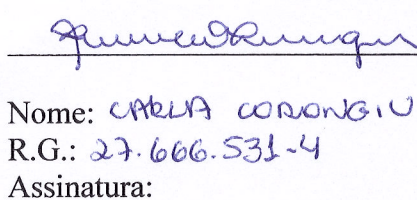 Nome: CARLA CORONGIU
R.G.: 27.666.531-4
Assinatura: